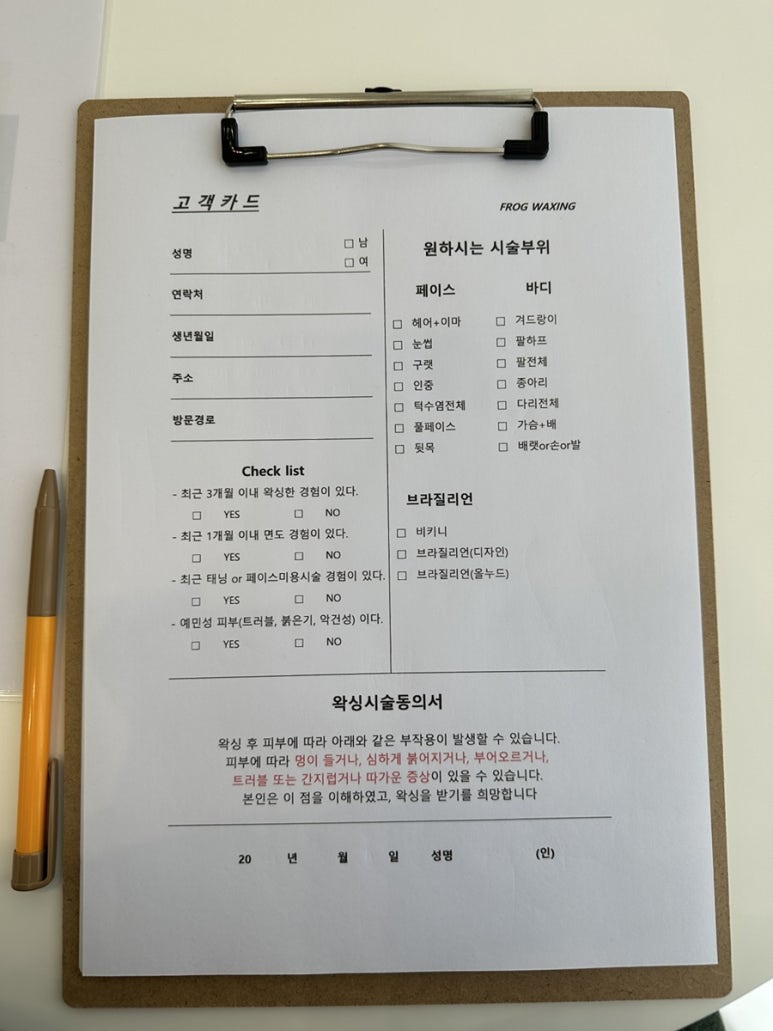 고객카드
FROG WAXING
성명
□ 남
□ 여
연락처
생년월일
주소
방문경로
Check list
- 최근 3개월 이내 왁싱한 경험이 있다.
□ YES □ NO
- 최근 1개월 이내 면도 경험이 있다.
□ YES □ NO
- 최근 태닝 or 페이스미용시술 경험이 있다.
□ YES □ NO
- 예민성 피부(트러블, 붉은기, 악건성) 이다.
□ YES □ NO
원하시는 시술부위
페이스
□ 헤어+이마
□ 눈썹
□ 구랫
□ 인중
□ 턱수염전체
□ 풀페이스
□ 뒷목
바디
□ 겨드랑이
□ 팔하프
□ 팔전체
□ 종아리
□ 다리전체
□ 가슴+배
□ 배랫or손or발
브라질리언
□ 비키니
□ 브라질리언(디자인)
□ 브라질리언(올누드)
왁싱시술동의서
왁싱 후 피부에 따라 아래와 같은 부작용이 발생할 수 있습니다.
피부에 따라 멍이 들거나, 심하게 붉어지거나, 부어오르거나,
트러블 또는 간지럽거나 따가운 증상이 있을 수 있습니다.
본인은 이 점을 이해하였고, 왁싱을 받기를 희망합니다
20 년 월 일 성명 (인)